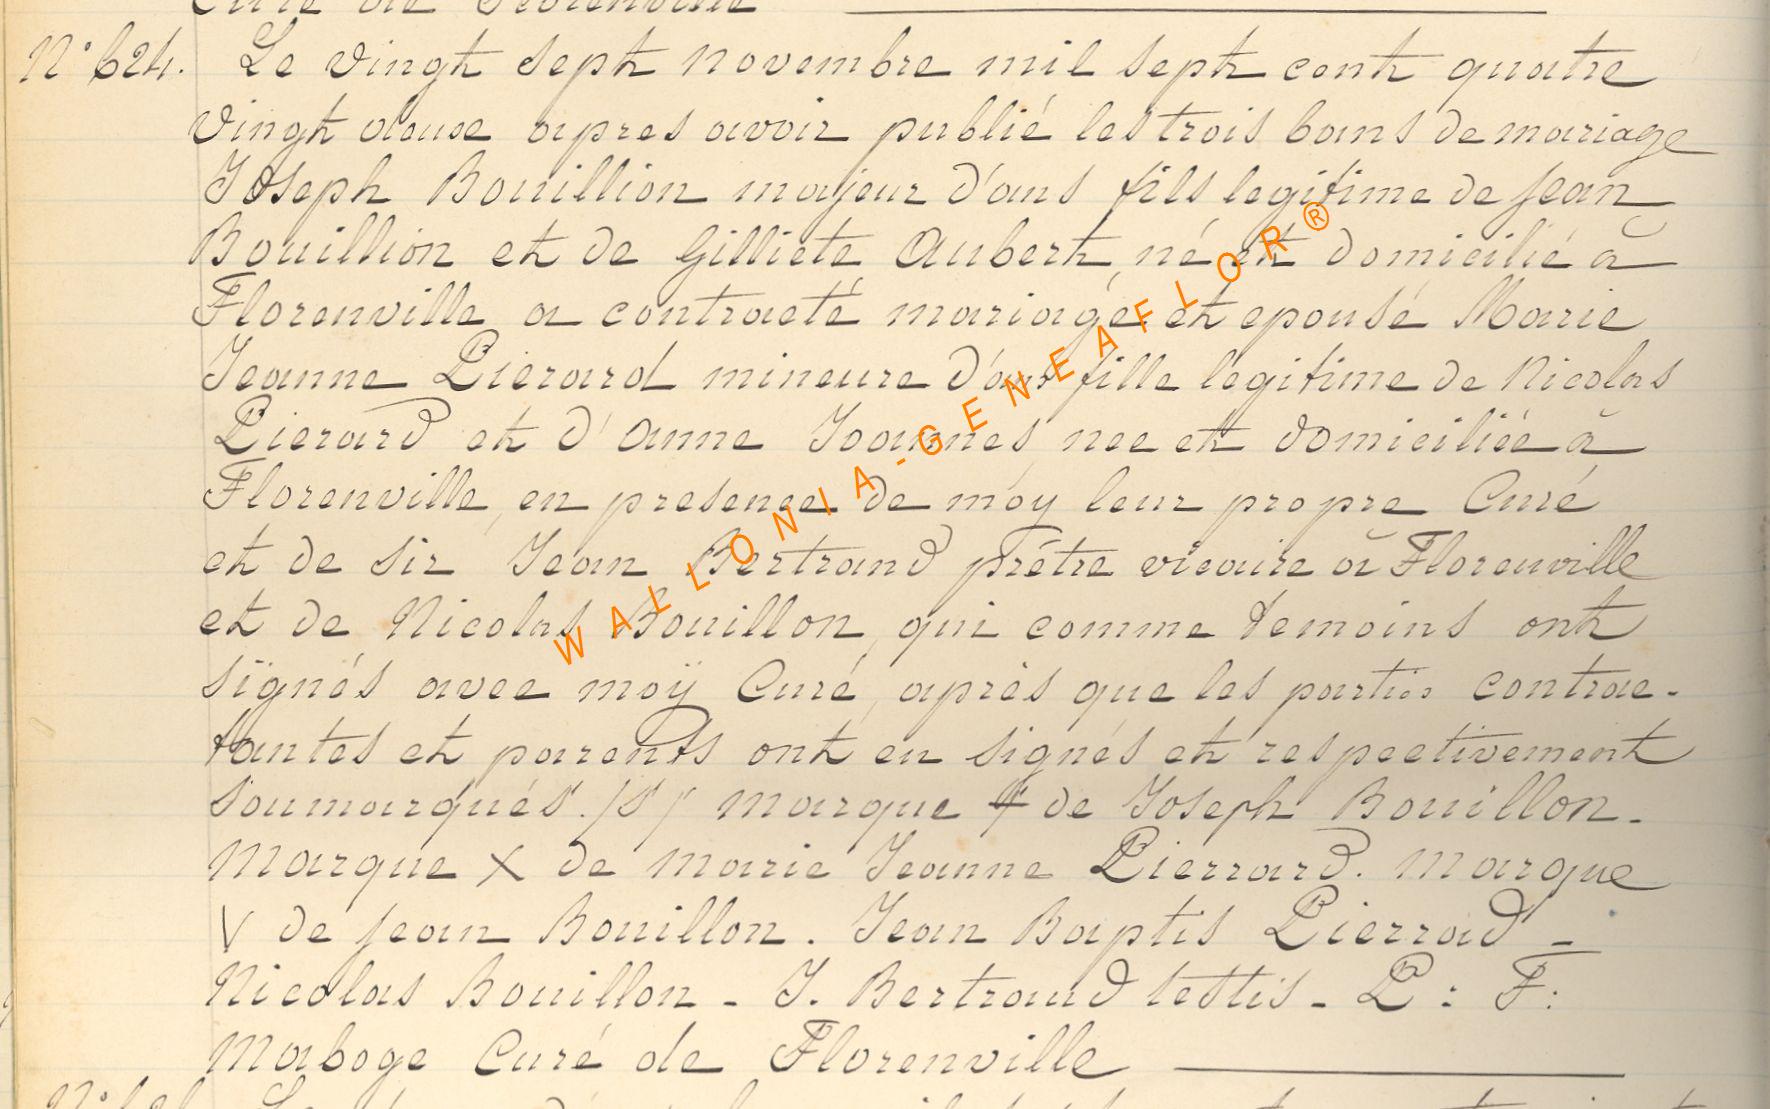 Curé de Florenville
N° 624. Le vingt sept novembre mil sept cent quatre
vingt deuse apres avoir publié les trois bans de mariage
Joseph Bouillion majeur d'ans fils legitime de Jean
Bouillion et de Gilliete Aubert, né et domicilié à
Florenville a contracté mariage, et epousé Marie
Jeanne Pierard mineure d'ans fille legitime de Nicolas
Pierard et d'Anne Joannes nee et domiciliée à
Florenville, en presence de moy leur propre Curé
et de Sir Jean Bertrand prêtre vicaire à Florenville
et de Nicolas Bouillon, qui comme temoins ont
signés avec moÿ Curé, après que les parties contrac-
tantes et parents ont en signés et respectivement
soumarqués. /S/ Marque de Joseph Bouillon.
Marque X de Marie Jeanne Pierrard. Marque
V de Jean Bouillon. Jean Baptis Pierrad -
Nicolas Bouillon - J. Bertrand testis - P: F:
Maboge Curé de Florenville
WALLONIA-GENEAFLOR®